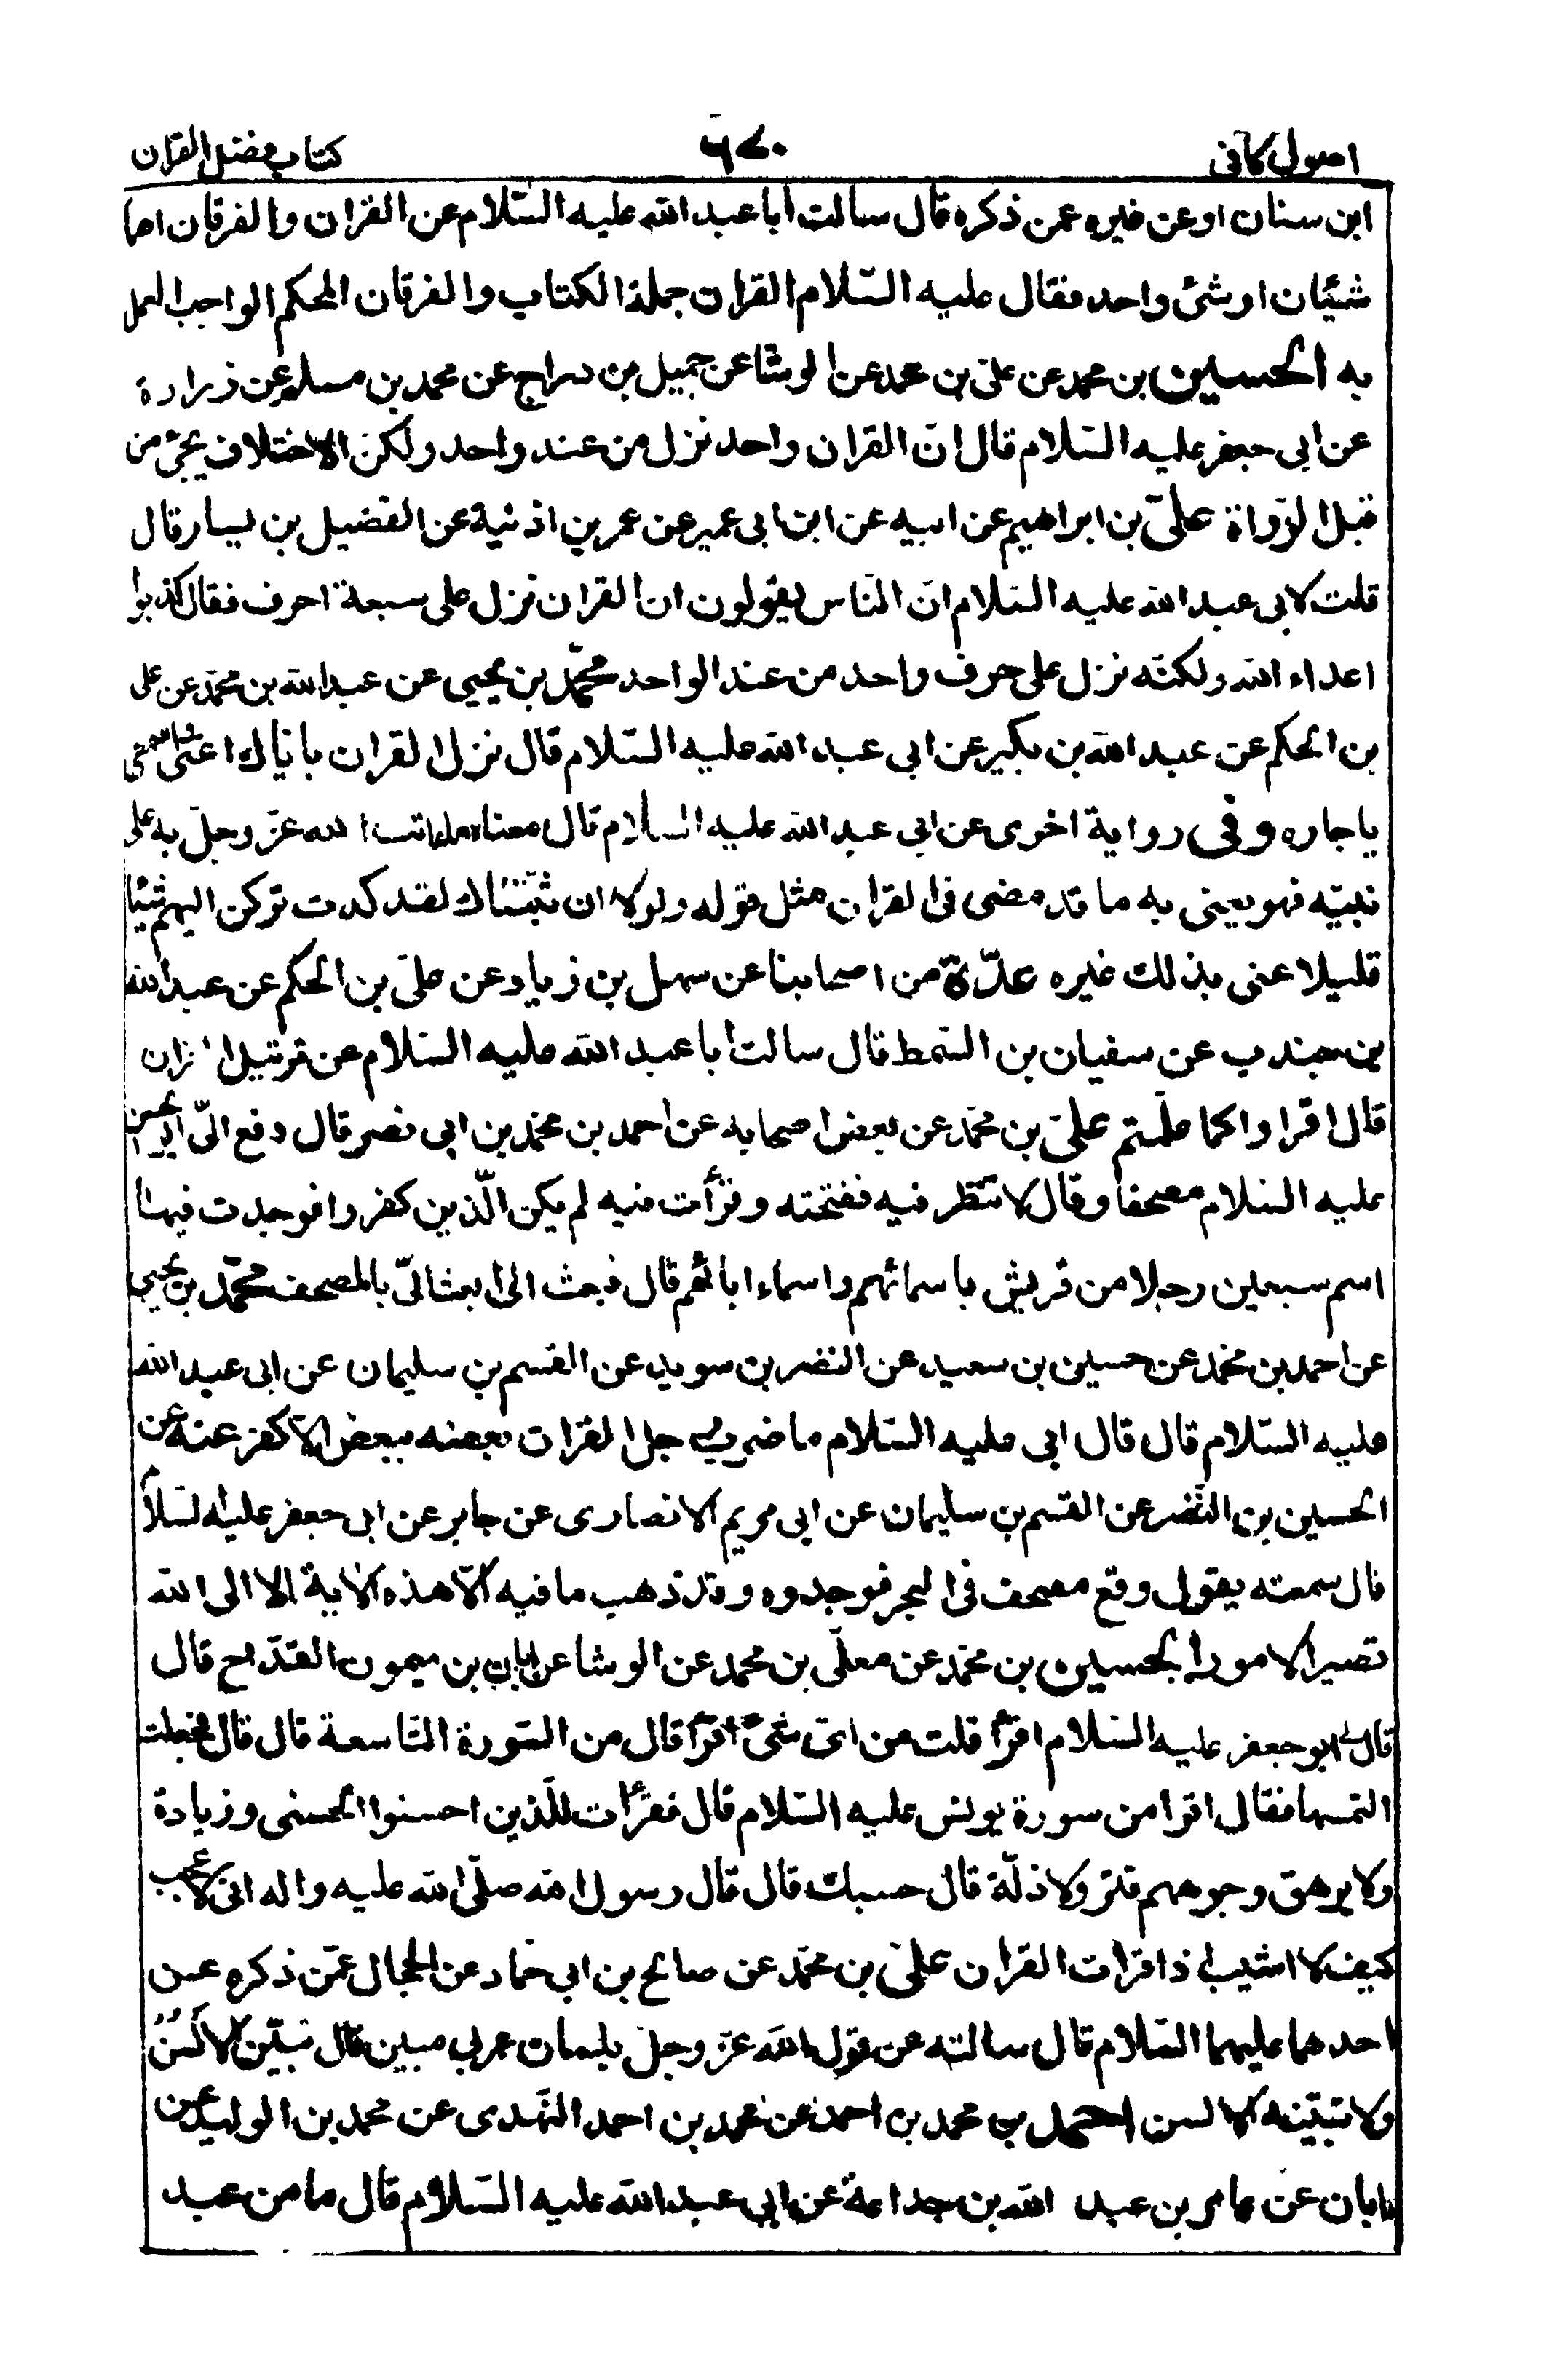 اصول کافی ۶۷۰ کتاب فضل القران
ابن سنان او عن غیره عمن ذکره قال سالت ابا عبد الله علیه السّلام عن القران والفرقان اهما
شیئان او شئ واحد فقال علیه السّلام القران جملة الکتاب والفرقان المحکم الواجب العمل
به الحسین بن محمد عن علی بن محمد عن الوشا عن جمیل بن دراج عن محمد بن مسلم عن زرارة
عن ابی جعفر علیه السّلام قال انّ القران واحد نزل من عند واحد ولکن الاختلاف یجئ من
قبل الرّواة علیّ بن ابراهیم عن ابیه عن ابن ابی عمیر عن عمر بن اذنیة عن الفضیل بن یسار قال
قلت لابی عبد الله علیه السّلام انّ النّاس یقولون ان القران نزل علی سبعة احرف فقال کذبوا
اعداء الله ولکنّه نزل علی حرف واحد من عند الواحد محمّد بن یحیی عن عبد الله بن محمّد عن علی
بن الحکم عن عبد الله بن بکیر عن ابی عبد الله علیه السّلام قال نزل القران بایّاك اعنی واسمعی
یا جاره وفی روایة اخری عن ابی عبد الله علیه السلام قال معناه ما عاتب الله عزّ وجلّ به علی
نبیّه فهو یعنی به ما قد مضی فی القران مثل قوله ولولا ان ثبّتناك لقد کدت ترکن الیهم شیئا
قلیلا عنی بذلك غیره عدّة من اصحابنا عن سهل بن زیاد عن علیّ بن الحکم عن عبد الله
بن جندب عن سفیان بن السّمط قال سالت ابا عبد الله علیه السّلام عن ترتیل القران
قال اقراوا کما علّمتم علیّ بن محمّد عن بعض اصحابه عن احمد بن محمّد بن ابی نصر قال دفع الیّ ابو الحسن
علیه السّلام مصحفا وقال لا تنظر فیه ففتحته وقرأت فیه لم یکن الّذین کفروا فوجدت فیها
اسم سبعین رجلا من قریش باسمائهم واسماء ابائهم قال فبعث الیّ ابعث الیّ بالمصحف محمّد بن یحیی
عن احمد بن محمّد عن حسین بن سعید عن النضر بن سوید عن القسم بن سلیمان عن ابی عبد الله
علیه السّلام قال قال ابی علیه السّلام ما ضرب رجل القران بعضه ببعض الا کفر عنه عن
الحسین بن النّضر عن القسم بن سلیمان عن ابی مریم الانصاری عن جابر عن ابی جعفر علیه السّلام
قال سمعته یقول وقع مصحف فی البحر فوجدوه وقد ذهب ما فیه الّا هذه الایة الا الی الله
تصیر الامور الحسین بن محمّد عن معلّی بن محمد عن الوشا عن ابان بن میمون القدّاح قال
قال لی ابو جعفر علیه السّلام اقرأ قلت من ایّ شئ اقرأ قال من السّورة التّاسعة قال قال فجعلت
التمسها فقال اقرا من سورة یونس علیه السّلام قال فقرأت للّذین احسنوا الحسنی وزیادة
ولا یرهق وجوههم قتر ولا ذلّة قال حسبك قال قال رسول الله صلّی الله علیه واله انی لاعجب
کیف لا اشیب اذا قرات القران علیّ بن محمّد عن صالح بن ابی حماد عن الحجال عمّن ذکره عن
احدهما علیهما السّلام قال سالته عن قول الله عزّ وجلّ بلسان عربی مبین قال یبیّن الالسن
ولا تبیّنه الالسن احمد بن محمد بن احمد عن محمد بن احمد النّهدی عن محمد بن الولید عن
ابان عن عامر بن عبد الله بن جداعة عن ابی عبد الله علیه السّلام قال ما من عبد